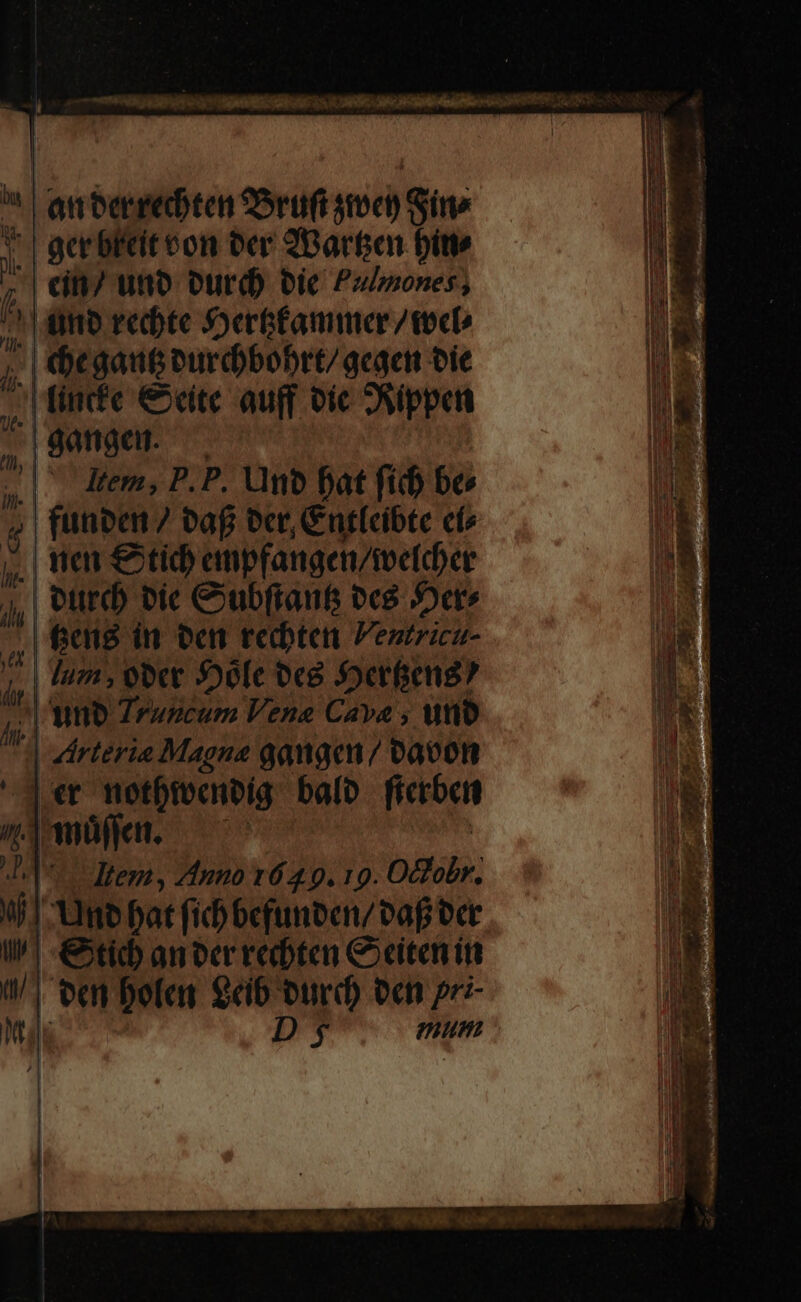 an der rechten Bruſt zwey Fin⸗
ger breit von der Wartzen hin⸗
ein/ und durch die Pulmones,
und rechte Hertzkammer/wel⸗
che gantz durchbohrt/gegen die
lincke Seite auff die Rippen
gangen.
Item, P.P. Und hat ſich be⸗
funden/ daß der Entleibte ei⸗
nen Stich empfangen/welcher
durch die Subſtantz des Her⸗
tzens in den rechten Ventricu-
lum, oder Hoͤle des Hertzens/
und Truncum Venæ Cavæ, und
Arteriæ Magnæ gangen/ davon
er nothwendig bald ſterben
muͤſſen.
Item, Anno 1649. 19. Octobr.
Und hat ſich befunden/daß der
Stich an der rechten Seiten in
den holen Leib durch den pri-
D 5 mum